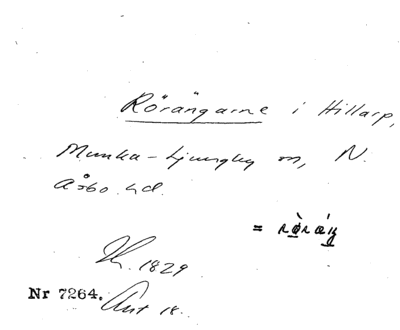 Rörängarne i Hillarp,
Munka-Ljungby sn, N.
Åsbo hd.
= rö̀ràŋ
1829
Nr 7264. Akt 18.